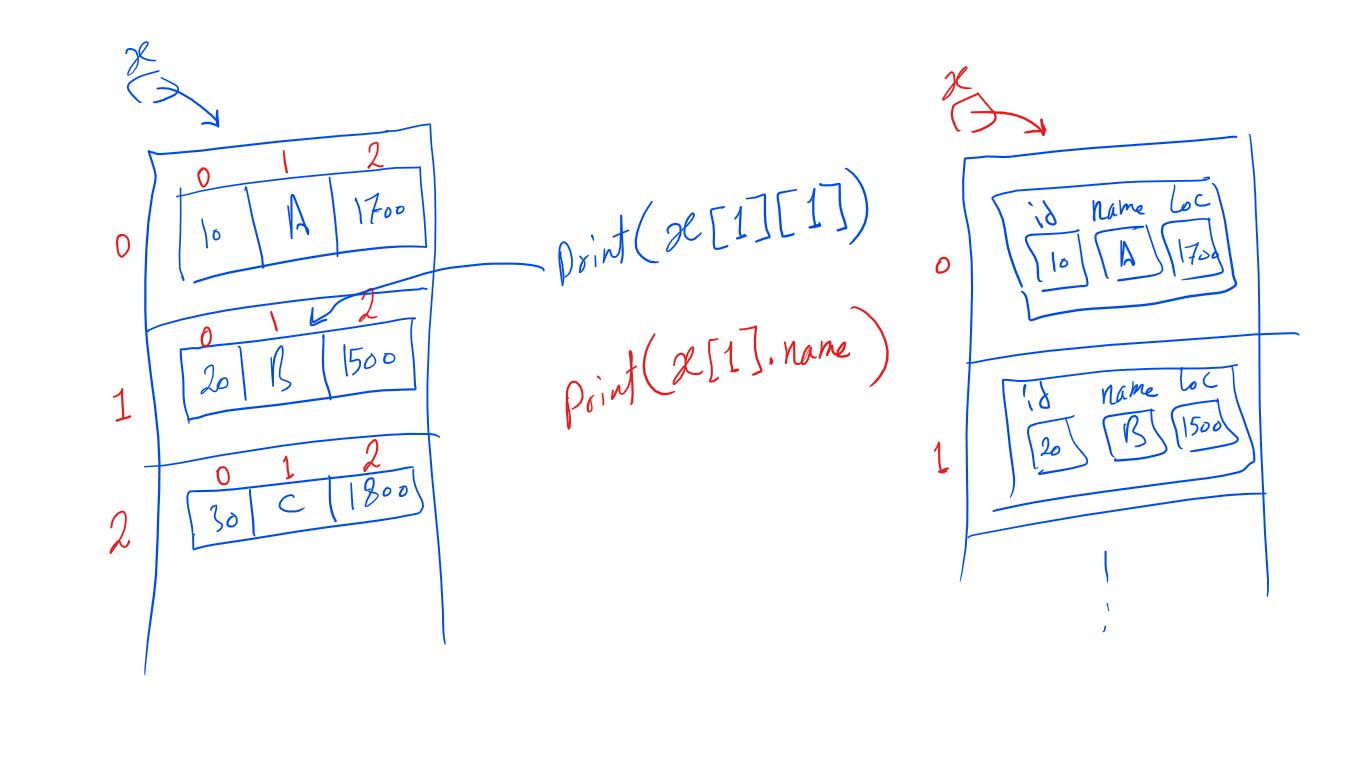 x
0 1 2
0 10 A 1700
0 1 2
1 20 B 1500
0 1 2
2 30 C 1800
Print(x[1][1])
Print(x[1].name)
x
id name Loc
0 10 A 1700
id name Loc
1 20 B 1500